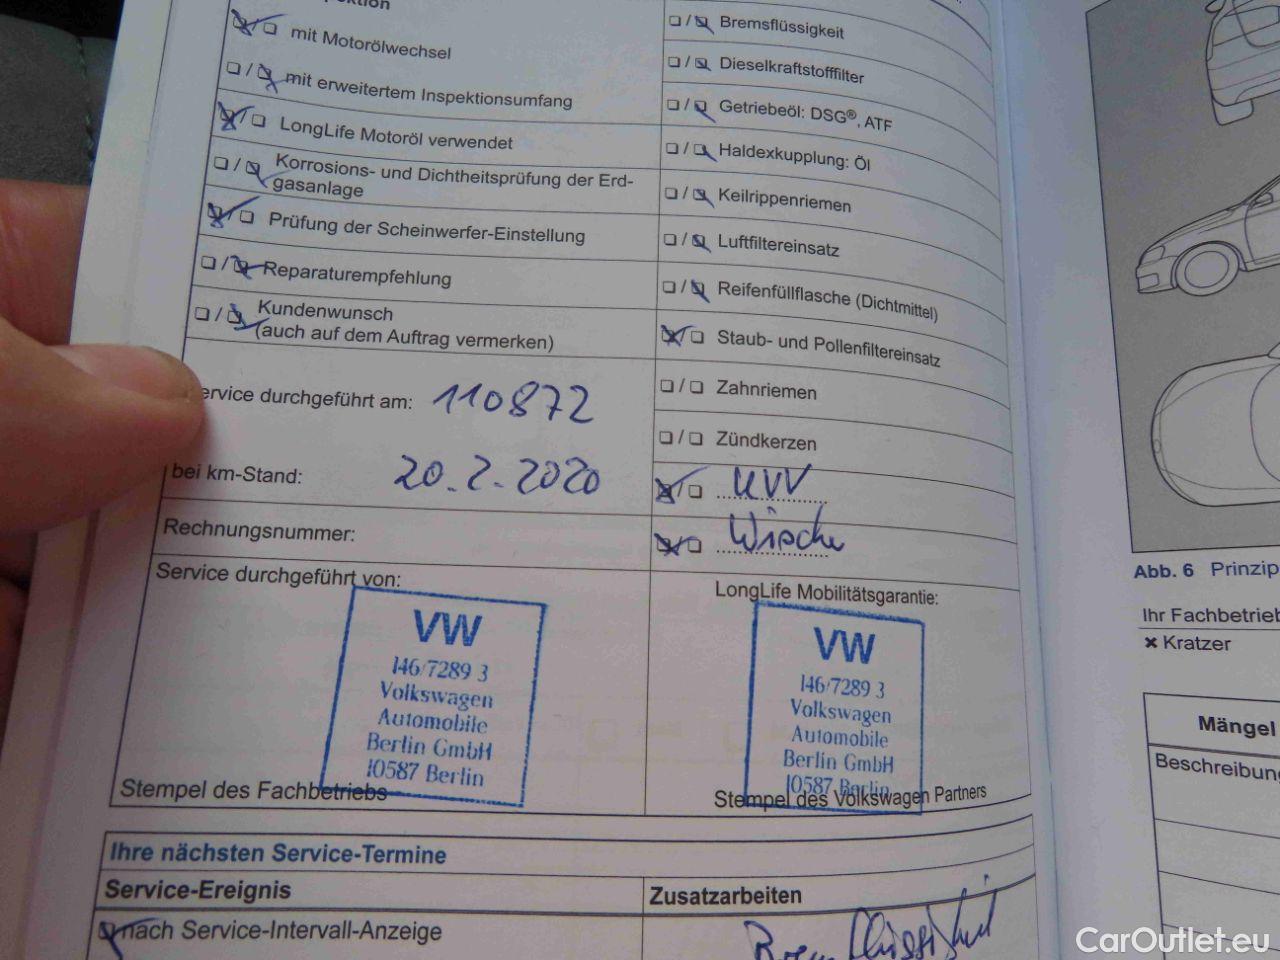 mit Motorölwechsel
mit erweitertem Inspektionsumfang
LongLife Motoröl verwendet
Korrosions- und Dichtheitsprüfung der Erd-
gasanlage
Prüfung der Scheinwerfer-Einstellung
Reparaturempfehlung
Kundenwunsch
(auch auf dem Auftrag vermerken)
Service durchgeführt am: 110872
bei km-Stand: 20.2.2020
Rechnungsnummer:
Service durchgeführt von:
VW
146/7289 3
Volkswagen
Automobile
Berlin GmbH
10587 Berlin
Stempel des Fachbetriebs
Bremsflüssigkeit
Dieselkraftstofffilter
Getriebeöl: DSG®, ATF
Haldexkupplung: Öl
Keilrippenriemen
Luftfiltereinsatz
Reifenfüllflasche (Dichtmittel)
Staub- und Pollenfiltereinsatz
Zahnriemen
Zündkerzen
UVV
Wische
LongLife Mobilitätsgarantie:
VW
146/7289 3
Volkswagen
Automobile
Berlin GmbH
10587 Berlin
Stempel des Volkswagen Partners
Ihre nächsten Service-Termine
Service-Ereignis
Zusatzarbeiten
nach Service-Intervall-Anzeige
Bremsflüssigkeit
Abb. 6 Prinzip
Ihr Fachbetrieb
× Kratzer
Mängel
Beschreibung
CarOutlet.eu